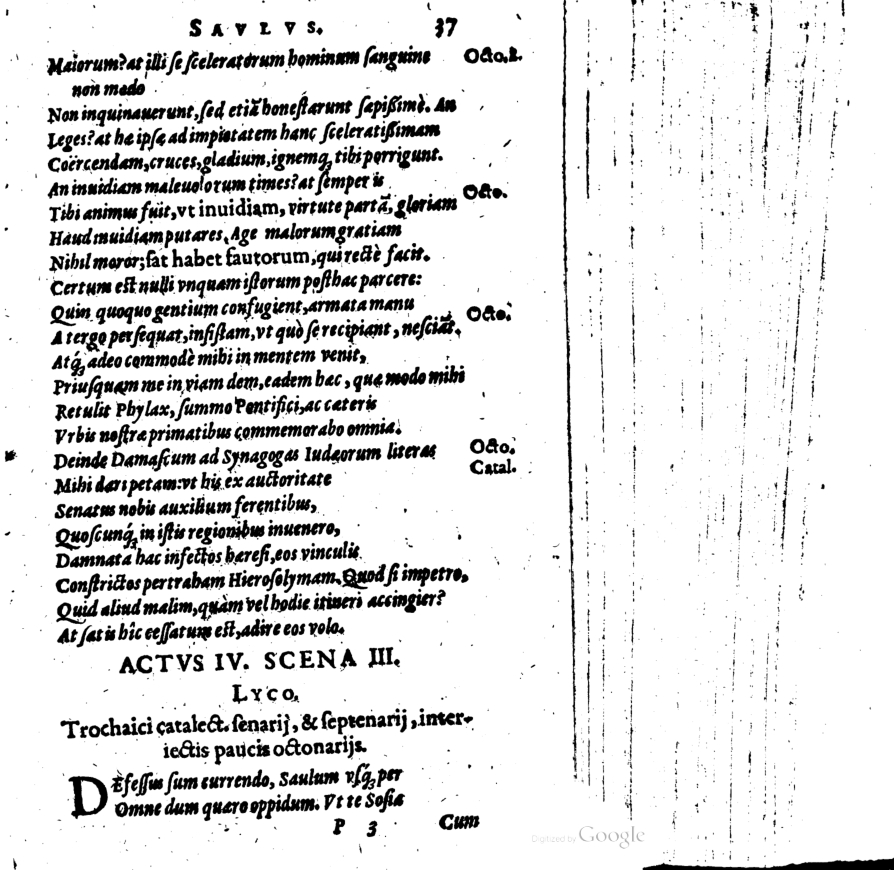 SAVLVS. 37
Maiorum? at illi se sceleratorum hominum sanguine Octo.2.
non modo
Non inquinauerunt, sed etiā honestarunt sæpißimè. An
Leges? at hæ ipsæ ad impietatem hanc sceleratißimam
Coërcendam, cruces, gladium, ignemq́; tibi porrigunt.
An inuidiam maleuolorum times? at semper is
Tibi animus fuit, vt inuidiam, virtute partā, gloriam Octo.
Haud inuidiam putares. Age malorum gratiam
Nihil moror; sat habet fautorum, qui rectè facit.
Certum est nulli vnquam istorum posthac parcere:
Quin quoquo gentium confugient, armata manu
A tergo persequar, insistam, vt quò se recipiant, nesciāt. Octo.
Atq́; adeo commodè mihi in mentem venit,
Priusquam me in viam dem, eadem hæc, quæ modo mihi
Retulit Phylax, summo Pontifici, ac cæteris
Vrbis nostræ primatibus commemorabo omnia.
Deinde Damascum ad Synagogas Iudæorum literas Octo.
Catal.
Mihi dari petam: vt his ex auctoritate
Senatus nobis auxilium ferentibus,
Quoscunq́; in istis regionibus inuenero,
Damnata hac infectos hæresi, eos vinculis
Constrictos pertraham Hierosolymam. Quod si impetro,
Quid aliud malim, quàm vel hodie itineri accingier?
At satis hîc cessatum est, adire eos volo.
ACTVS IV. SCENA III.
LYCO.
Trochaici catalect. senarij, & septenarij, inter-
iectis paucis octonarijs.
DEfessus sum currendo, Saulum vsq́; per
Omne dum quæro oppidum. Vt te Sosia
P 3 Cum
Digitized by Google